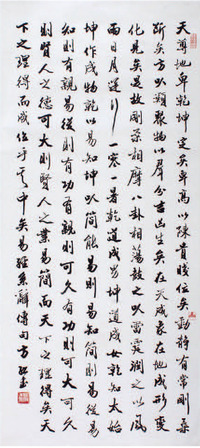 天尊地卑乾坤定矣卑高以陳貴賤位矣動靜有常剛柔
斷矣方以類聚物以群分吉凶生矣在天成象在地成形變
化見矣是故剛柔相摩八卦相蕩鼓之以雷霆潤之以風
雨日月運行一寒一暑乾道成男坤道成女乾知太始
坤作成物乾以易知坤以簡能易則易知簡則易從易
知則有親易從則有功有親則可久有功則可大可久
則賢人之德可大則賢人之業易簡而天下之理得矣天
下之理得而成位乎其中矣易繫辭傳句方